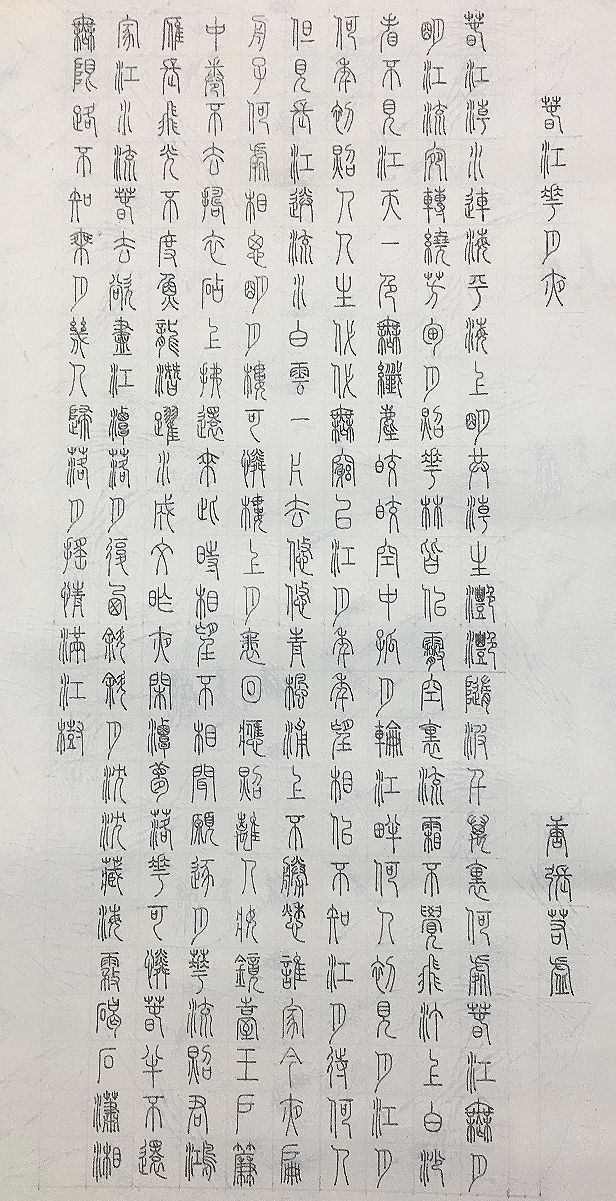 春江花月夜 唐張若虛
春江潮水連海平海上明共潮生灩灩隨波千萬裏何處春江無月
明江流宛轉繞芳甸月照花林皆似霰空裏流霜不覺飛汀上白沙
看不見江天一色無纖塵皎皎空中孤月輪江畔何人初見月江月
何年初照人人生代代無窮已江月年年望相似不知江月待何人
但見長江送流水白雲一片去悠悠青楓浦上不勝愁誰家今夜扁
舟子何處相思明月樓可憐樓上月裵回應照離人妝鏡臺玉戶簾
中卷不去擣衣砧上拂還來此時相望不相聞願逐月華流照君鴻
雁長飛光不度魚龍潛躍水成文昨夜閑潭夢落花可憐春半不還
家江水流春去欲盡江潭落月復西斜斜月沈沈藏海霧碣石瀟湘
無限路不知乘月幾人歸落月搖情滿江樹